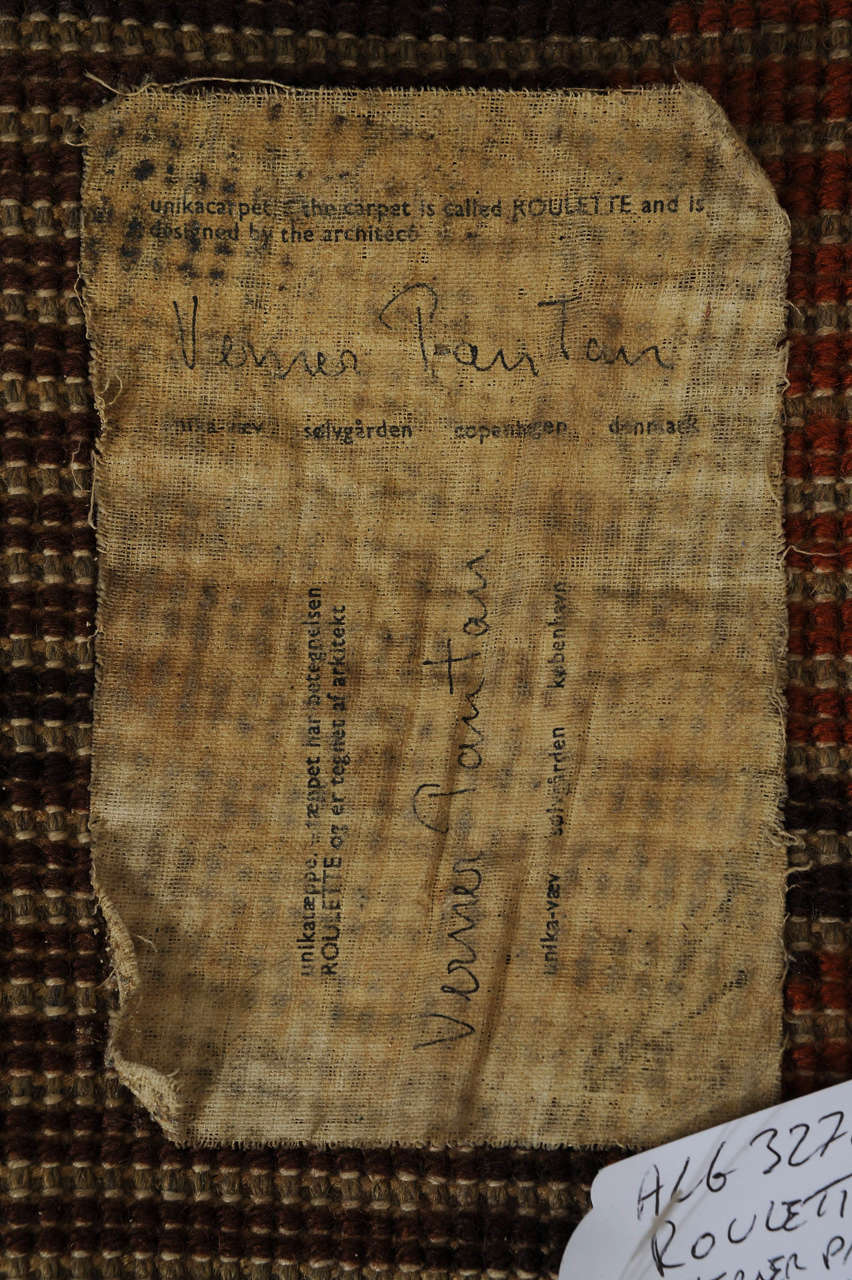 unikacarpet : the carpet is called ROULETTE and is
designed by the architect
Verner Panton
unika-væv sølvgården copenhagen denmark
unikatæppe : tæppet har betegnelsen
ROULETTE og er tegnet af arkitekt
Verner Panton
unika-væv sølvgården københavn
ALG 327
ROULETT
VERNER PA